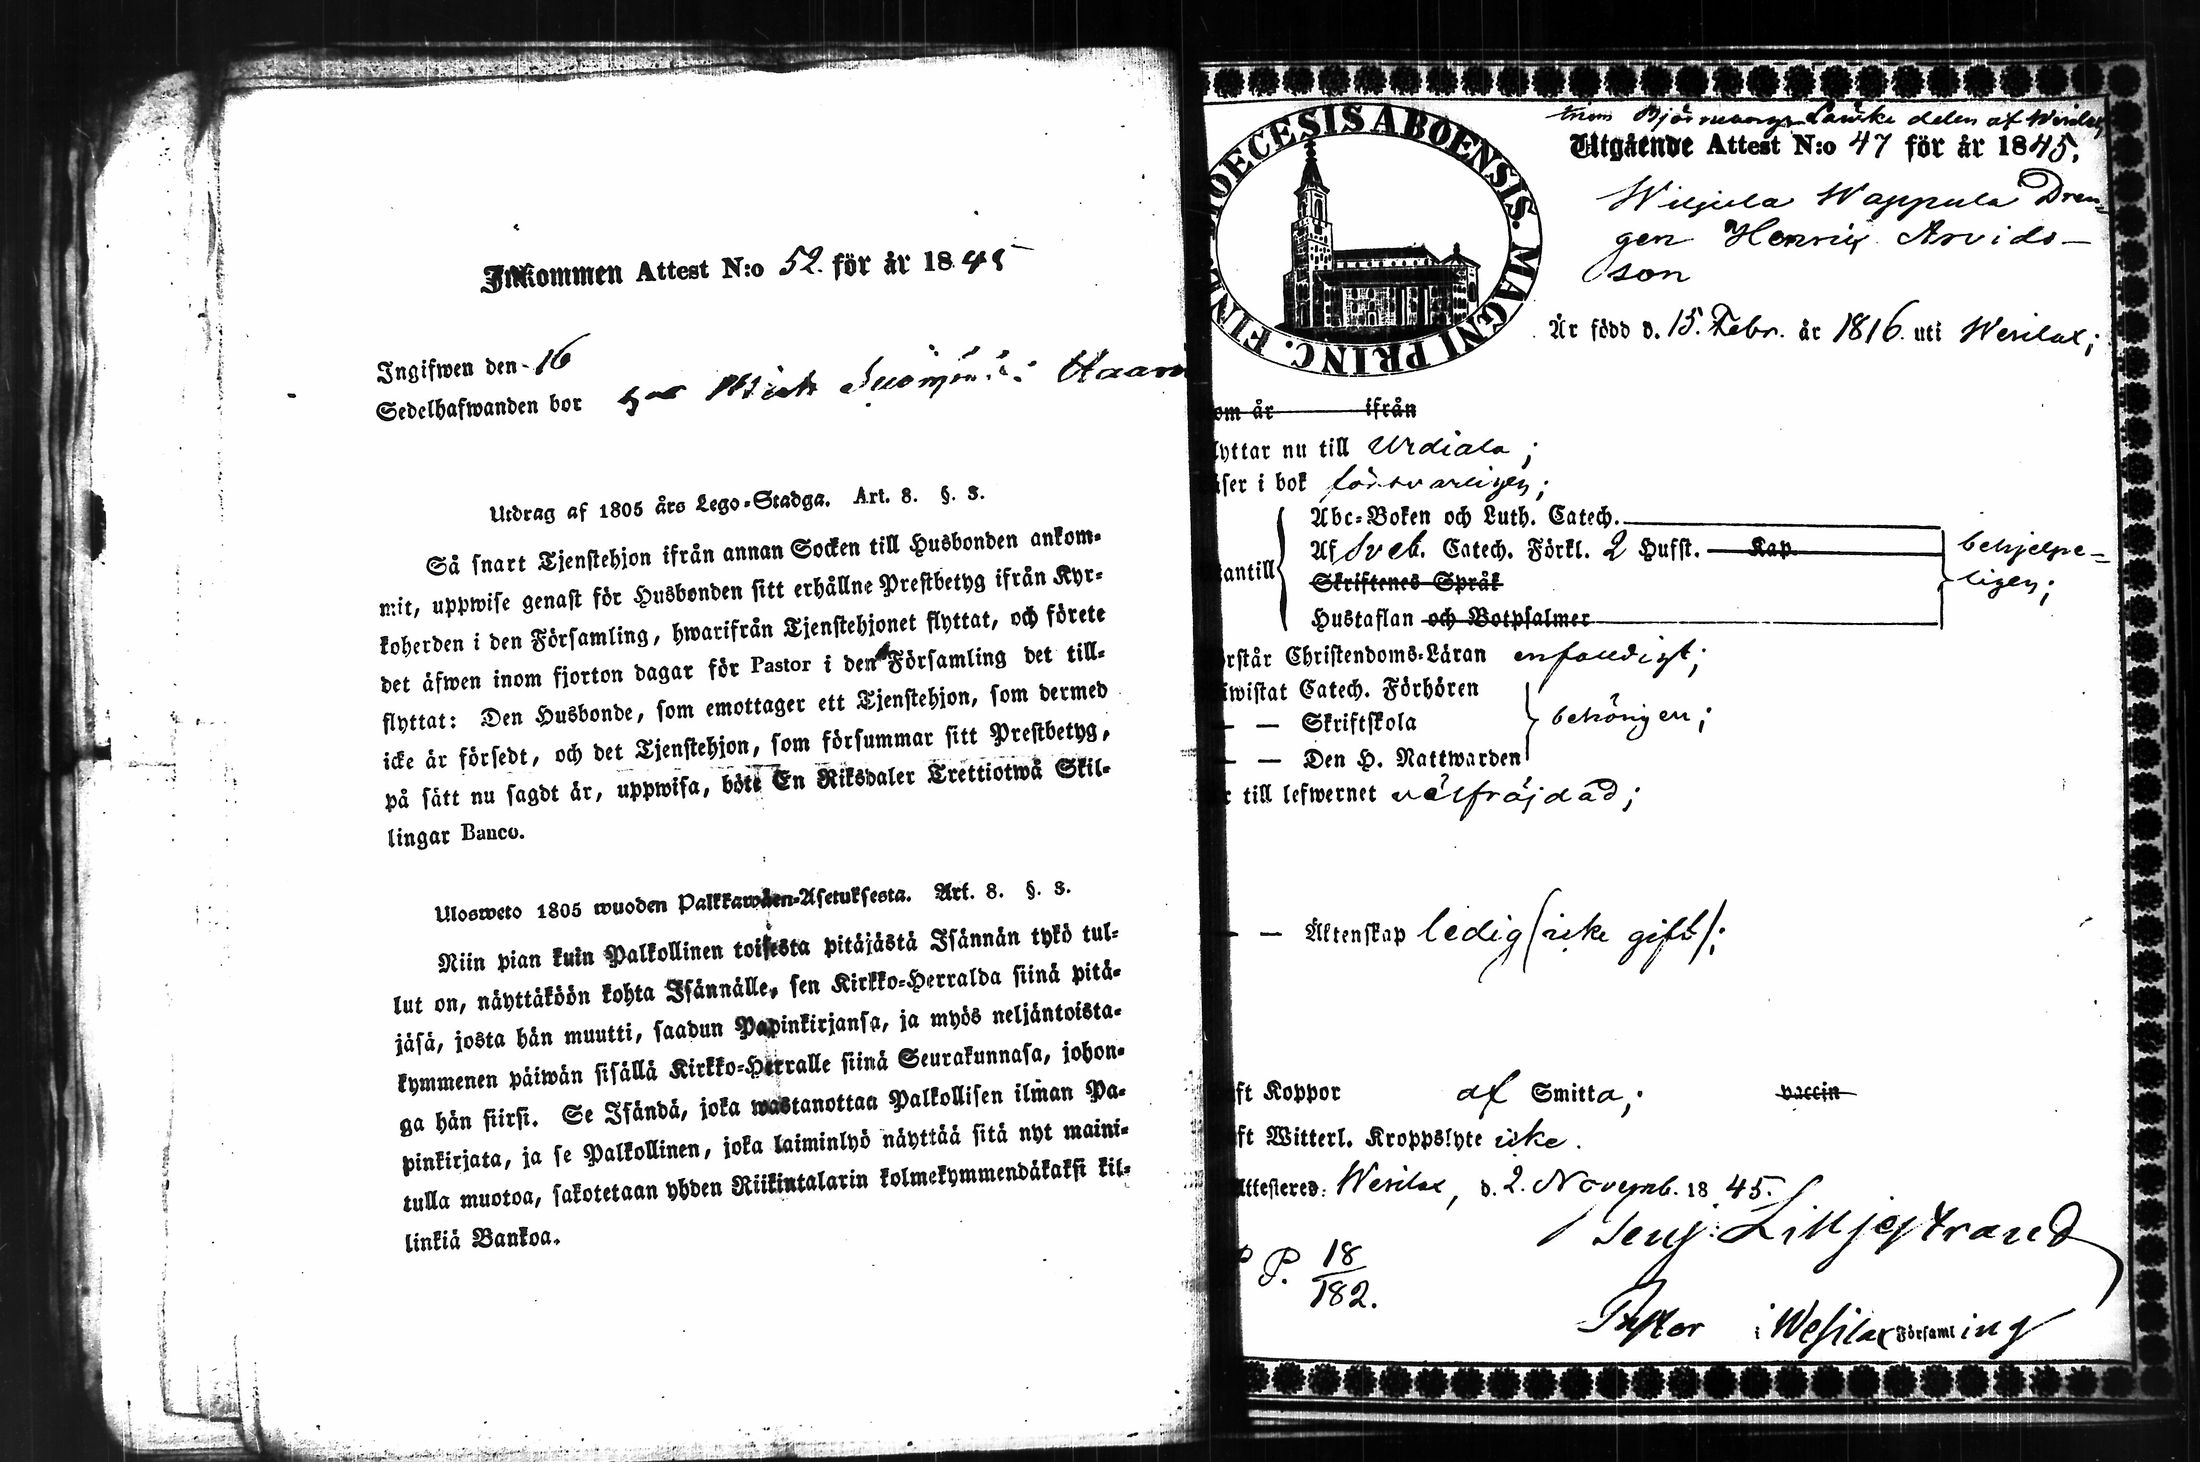 Inkommen Attest N:o 52. för år 1845
Ingifwen den 16
Sedelhafwanden bor hos
Utdrag af 1805 års Lego-Stadga. Art. 8. §. 3.
Så snart Tjenstehjon ifrån annan Socken till Husbonden ankom-
mit, uppwise genast för Husbonden sitt erhållne Prestbetyg ifrån Kyr-
koherden i den Församling, hwarifrån Tjenstehjonet flyttat, och förete
det äfwen inom fjorton dagar för Pastor i den Församling det till-
flyttat: Den Husbonde, som emottager ett Tjenstehjon, som dermed
icke är försedt, och det Tjenstehjon, som försummar sitt Prestbetyg,
på sätt nu sagdt är, uppwisa, böte En Riksdaler Trettiotwå Skil-
lingar Banco.
Ulosweto 1805 wuoden Palkkawäen-Asetuksesta. Art. 8. §. 3.
Niin pian kuin Palkollinen toisesta pitäjästä Isännän tykö tul-
lut on, näyttäköön kohta Isännälle, sen Kirkko-Herralda siinä pitä-
jäsä, josta hän muutti, saadun Papinkirjansa, ja myös neljäntoista-
kymmenen päiwän sisällä Kirkko-Herralle siinä Seurakunnasa, johon-
ga hän siirsi. Se Isändä, joka wastanottaa Palkollisen ilman Pa-
pinkirjata, ja se Palkollinen, joka laiminlyö näyttää sitä nyt maini-
tulla muotoa, sakotetaan yhden Riikintalarin kolmekymmendäkaksi kil-
linkiä Bankoa.
DIOECESIS ABOENSIS. MAGNI PRINC. FINL.
Björneborgs Länske delen af Wesilax,
Utgående Attest N:o 47 för år 1845.
Wiljiila Wappula Dren-
gen Henrik Arvids-
son
Är född d. 15. Febr. år 1816. uti Wesilax;
om år ifrån
lyttar nu till Urdiala;
äser i bok försvarligen;
Abc-Boken och Luth. Catech.
Af Sveb. Catech. Förkl. 2 Hufst. Kap. behjelpe-
antill Skriftenes Språk ligen;
Hustaflan och Botpsalmer
rstår Christendoms-Läran enfaldigt;
iwistat Catech. Förhören
— — Skriftskola behörigen;
— — Den H. Nattwarden
r till lefwernet välfräjdad;
— — Äktenskap ledig (icke gift);
ft Koppor af Smitta; vaccin
ft Witterl. Kroppslyte icke.
Attesteres: Wesilax, d. 2. Novemb. 1845.
Benj: Lilljestrand
P. 18
182.
Pastor i Wesilax Församling